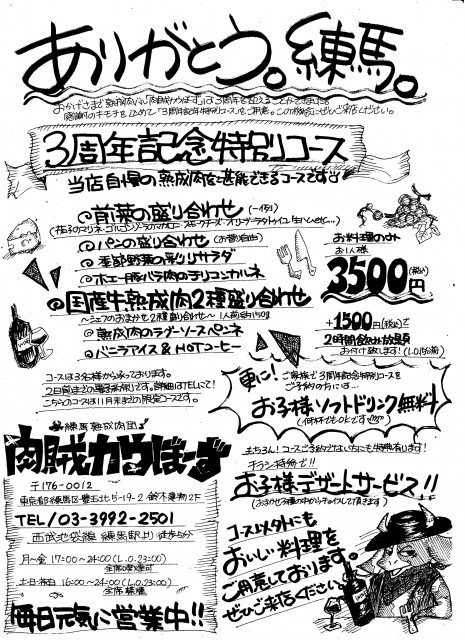 ありがとう。練馬。
おかげさまで熟成肉バル「肉賊カウぼーず」は3周年を迎えることができました。
感謝のキモチを込めて「3周年記念特別コース」をご用意。この機会にぜひご来店ください。
3周年記念特別コース
当店自慢の熟成肉を堪能できるコースです
◎前菜の盛り合わせ(一例)
◎パンの盛り合わせ(お替り自由)
◎季節野菜の彩りサラダ
◎ホエー豚バラ肉のチリコンカルネ
◎国産牛熟成肉2種盛り合わせ
~シェフのおまかせ2種盛り合わせ~ 1人前各150g
◎熟成肉のラグーソースペンネ
◎バニラアイス&HOTコーヒー
お料理のみ
お1人様
3500円(税込)
+1500円(税込)で
2時間飲み放題
お付け致します!(L.O.15分前)
コースは3名様から承っております。
2日前までの要予約です。詳細はTELにて!
こちらのコースは11月末までの限定コースです。
更に!
ご家族で3周年記念特別コースを
ご予約の方には…
お子様ソフトドリンク無料
(何杯でもOKです)
もちろん!コースご予約でない方にも特典有ります!
チラシ持参で!!
お子様デザートサービス!!
(おまかせ3種の中からチョイスして頂きます)
練馬熟成肉団
肉賊カウぼーず
〒176-0012
東京都練馬区豊玉北5-19-2 鈴木建物2F
TEL/03-3992-2501
西武池袋線 練馬駅より徒歩5分
月~金 17:00~24:00(L.O.23:00)
全席喫煙可
土・日・祝日 16:00~24:00(L.O.23:00)
全席禁煙
毎日元気に営業中!!
コース以外にも
おいしい料理を
ご用意しております。
ぜひご来店ください。